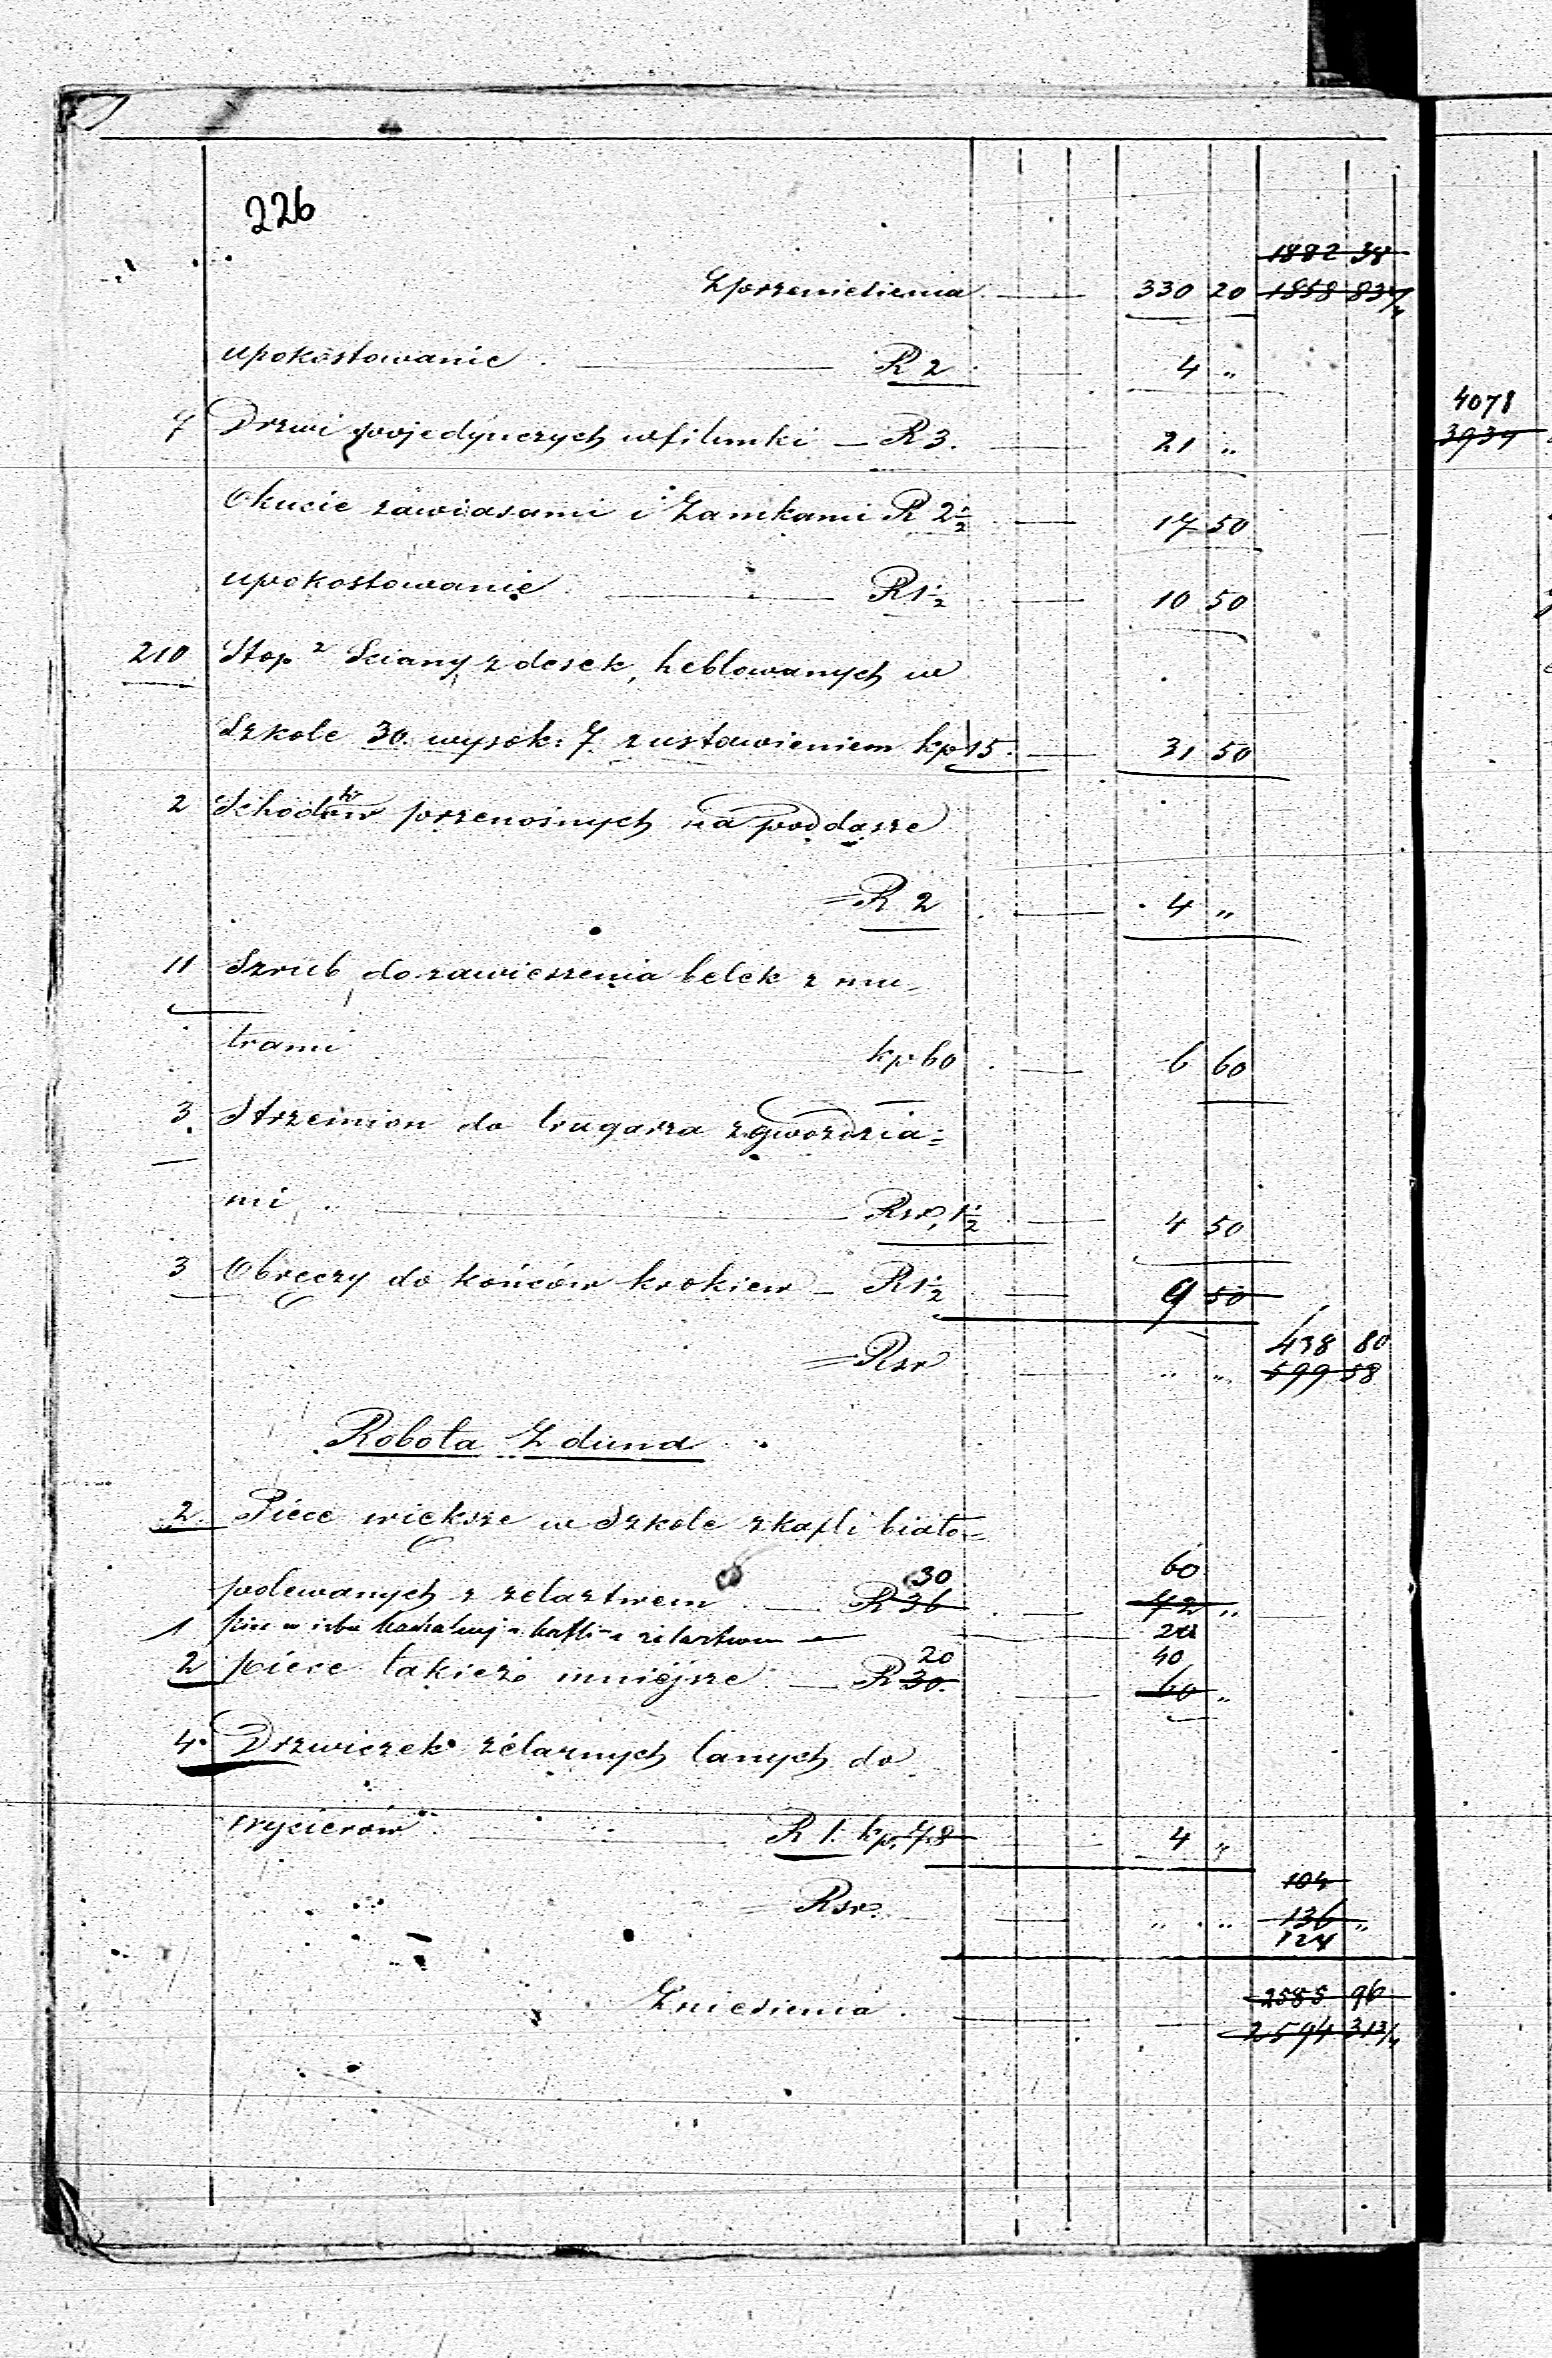 226
1882 38
Zprzeniesienia 330 20 1858 83 1/4
upokostowanie R 2 4 "
7 Drzwi pojedynczych w filunki R 3. 21 "
Okucie zawiasami i Zamkami R 2 1/2 17 50
upokostowanie R 1 1/2 10 50
210 Stop 2 Sciany z desek, heblowanych w
Szkole 30. wysok: 7. z ustawieniem kp 15. 31 50
2 Schodów przenośnych na poddasze
= R 2 4 "
11 Szrub do zawieszenia belek z mu-
trami kp 60 6 60
3. Strzemion do tragarza z gwoździa=
mi Rsr. 1 1/2 4 50
3 Obręczy do końców krokiew R 1 1/2 9 50
438 80
= Rsr " " 599 58
Robota Zduna
2. Piece większe w Szkole z kafli biało=
30 60
polewanych z żelaztwem R 36 72 "
1 piec w izbie z kafli z żelaztwem 20
20 40
2 piece takież mniéjsze R 30. 60 "
4. Drzwiczek żelaznych lanych do
trycierów R 1. kp. 78 4 "
104
= Rsr. " " 136 "
124
Zniesienia 2585 96
2594 31 3/4
4078
3939